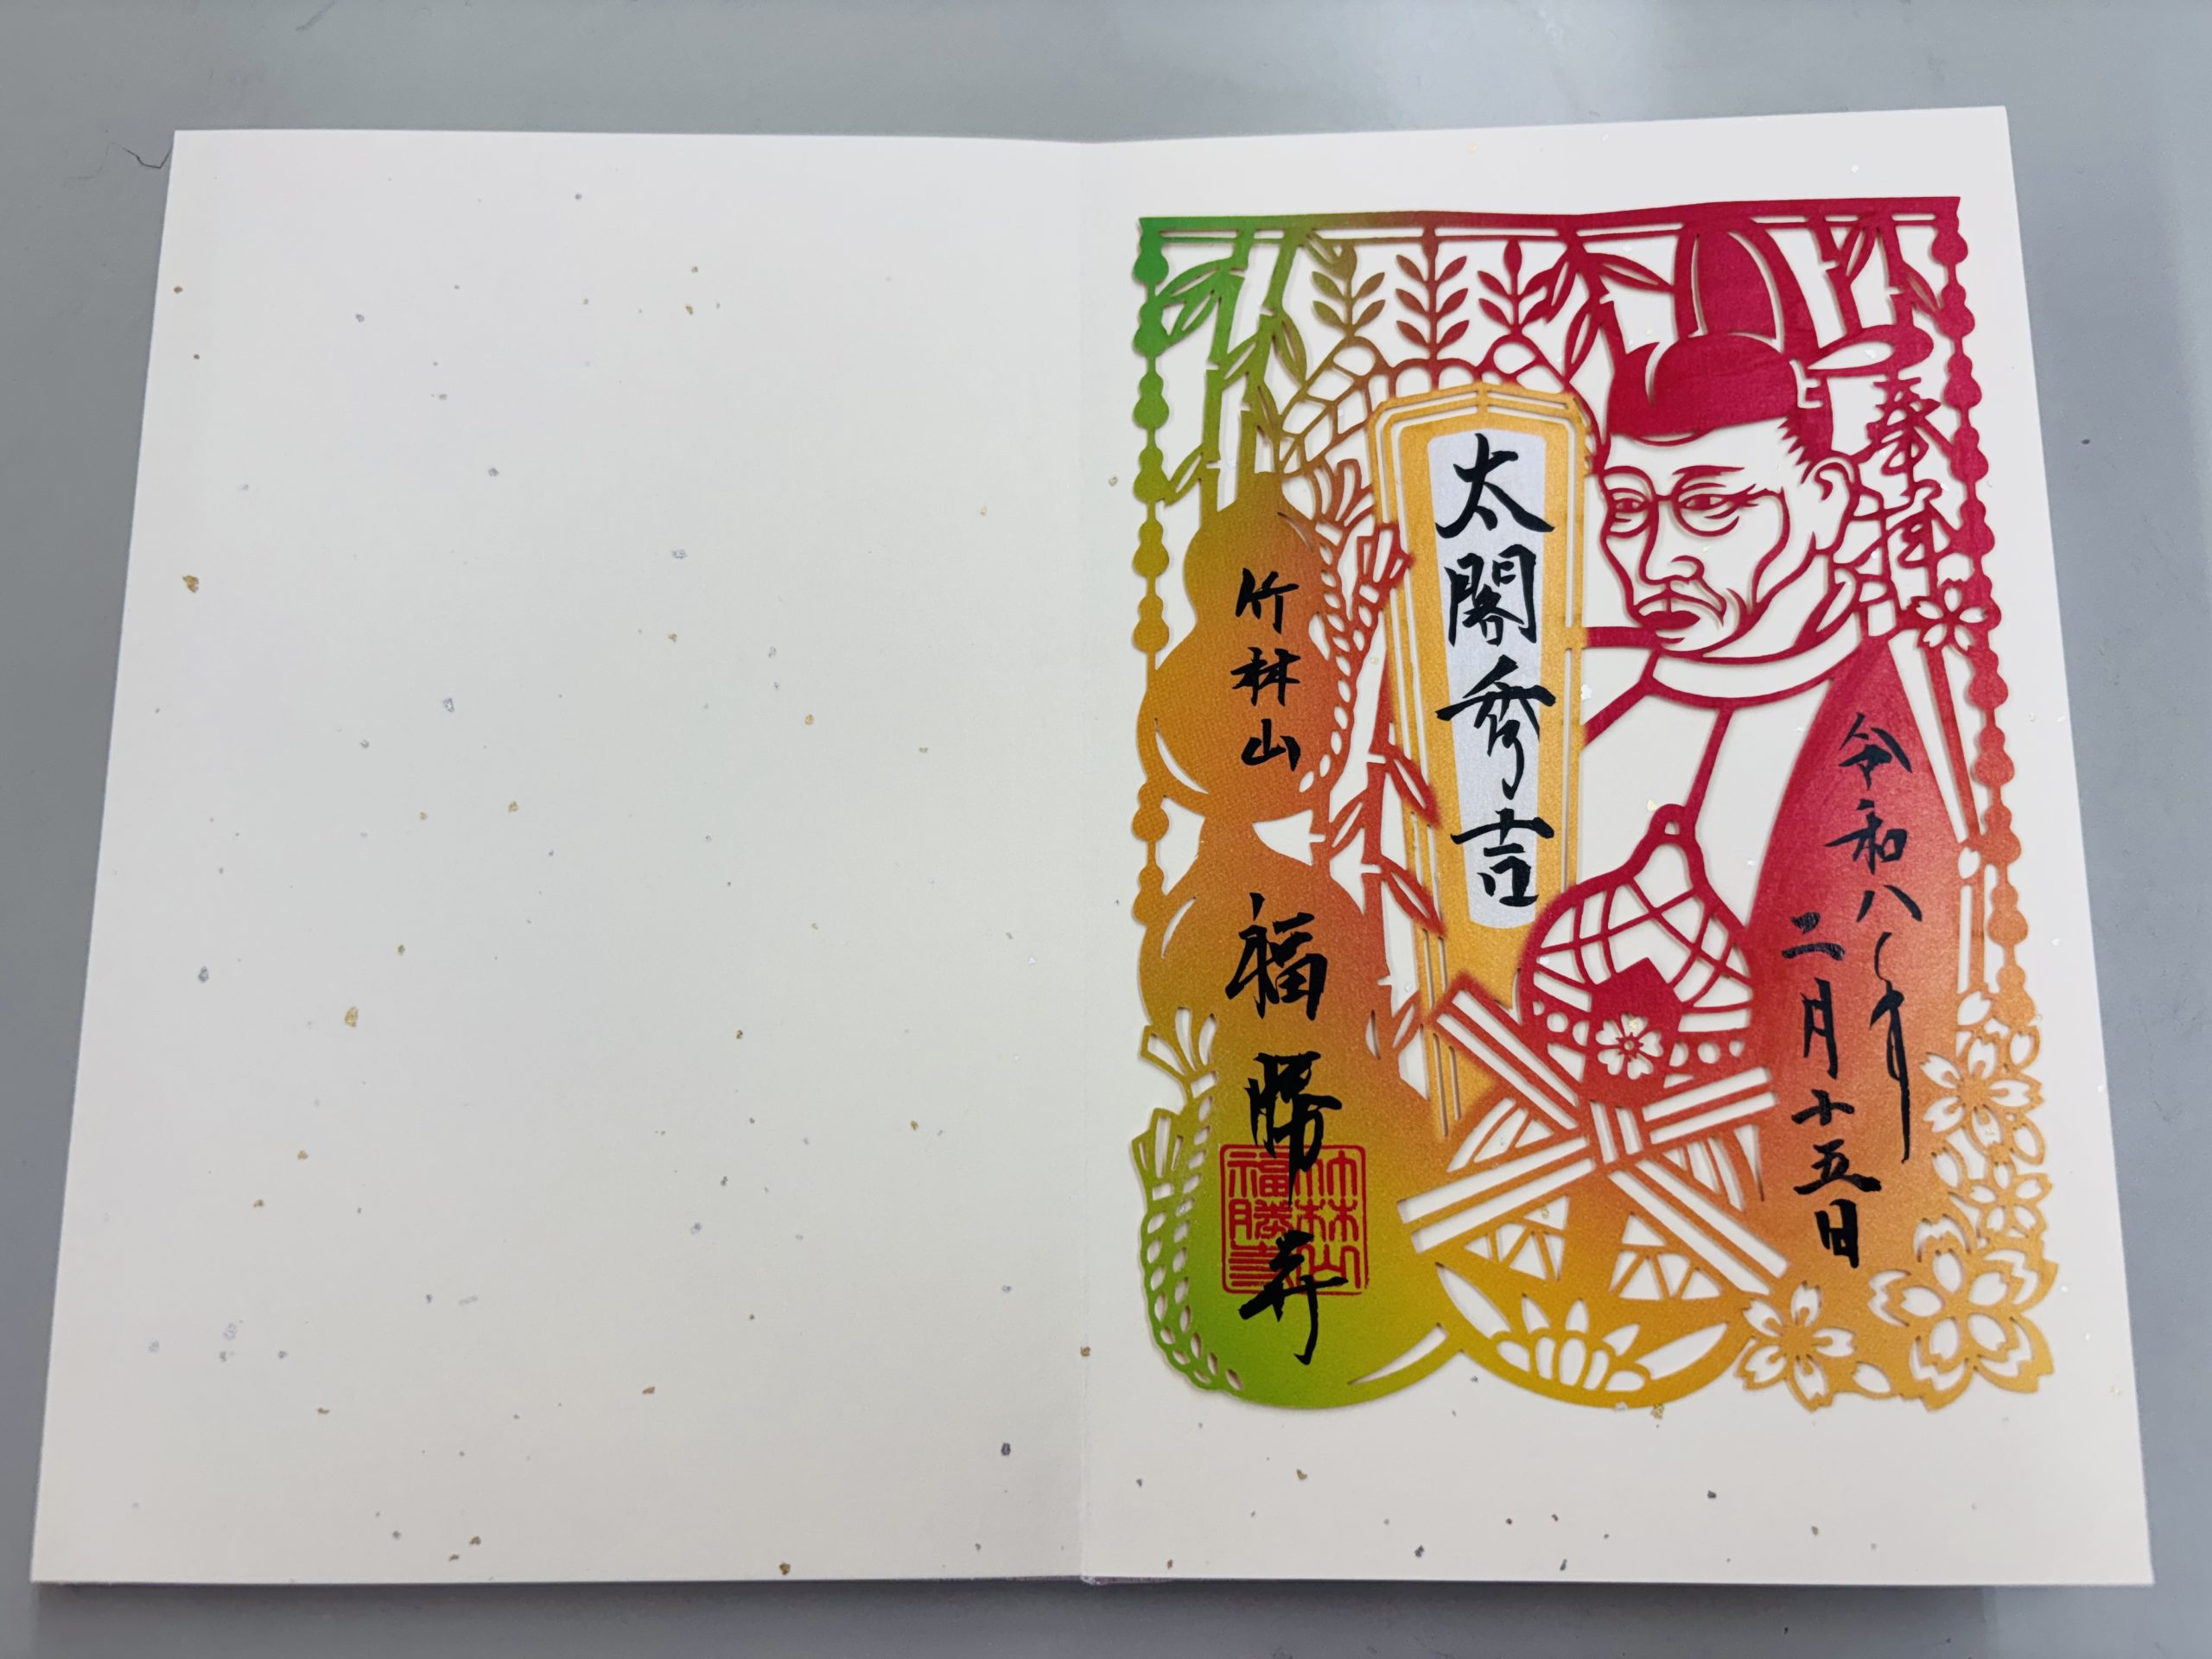 奉拝
令和八年
二月十五日
太閤秀吉
竹林山
福勝寺
竹林山
福勝寺